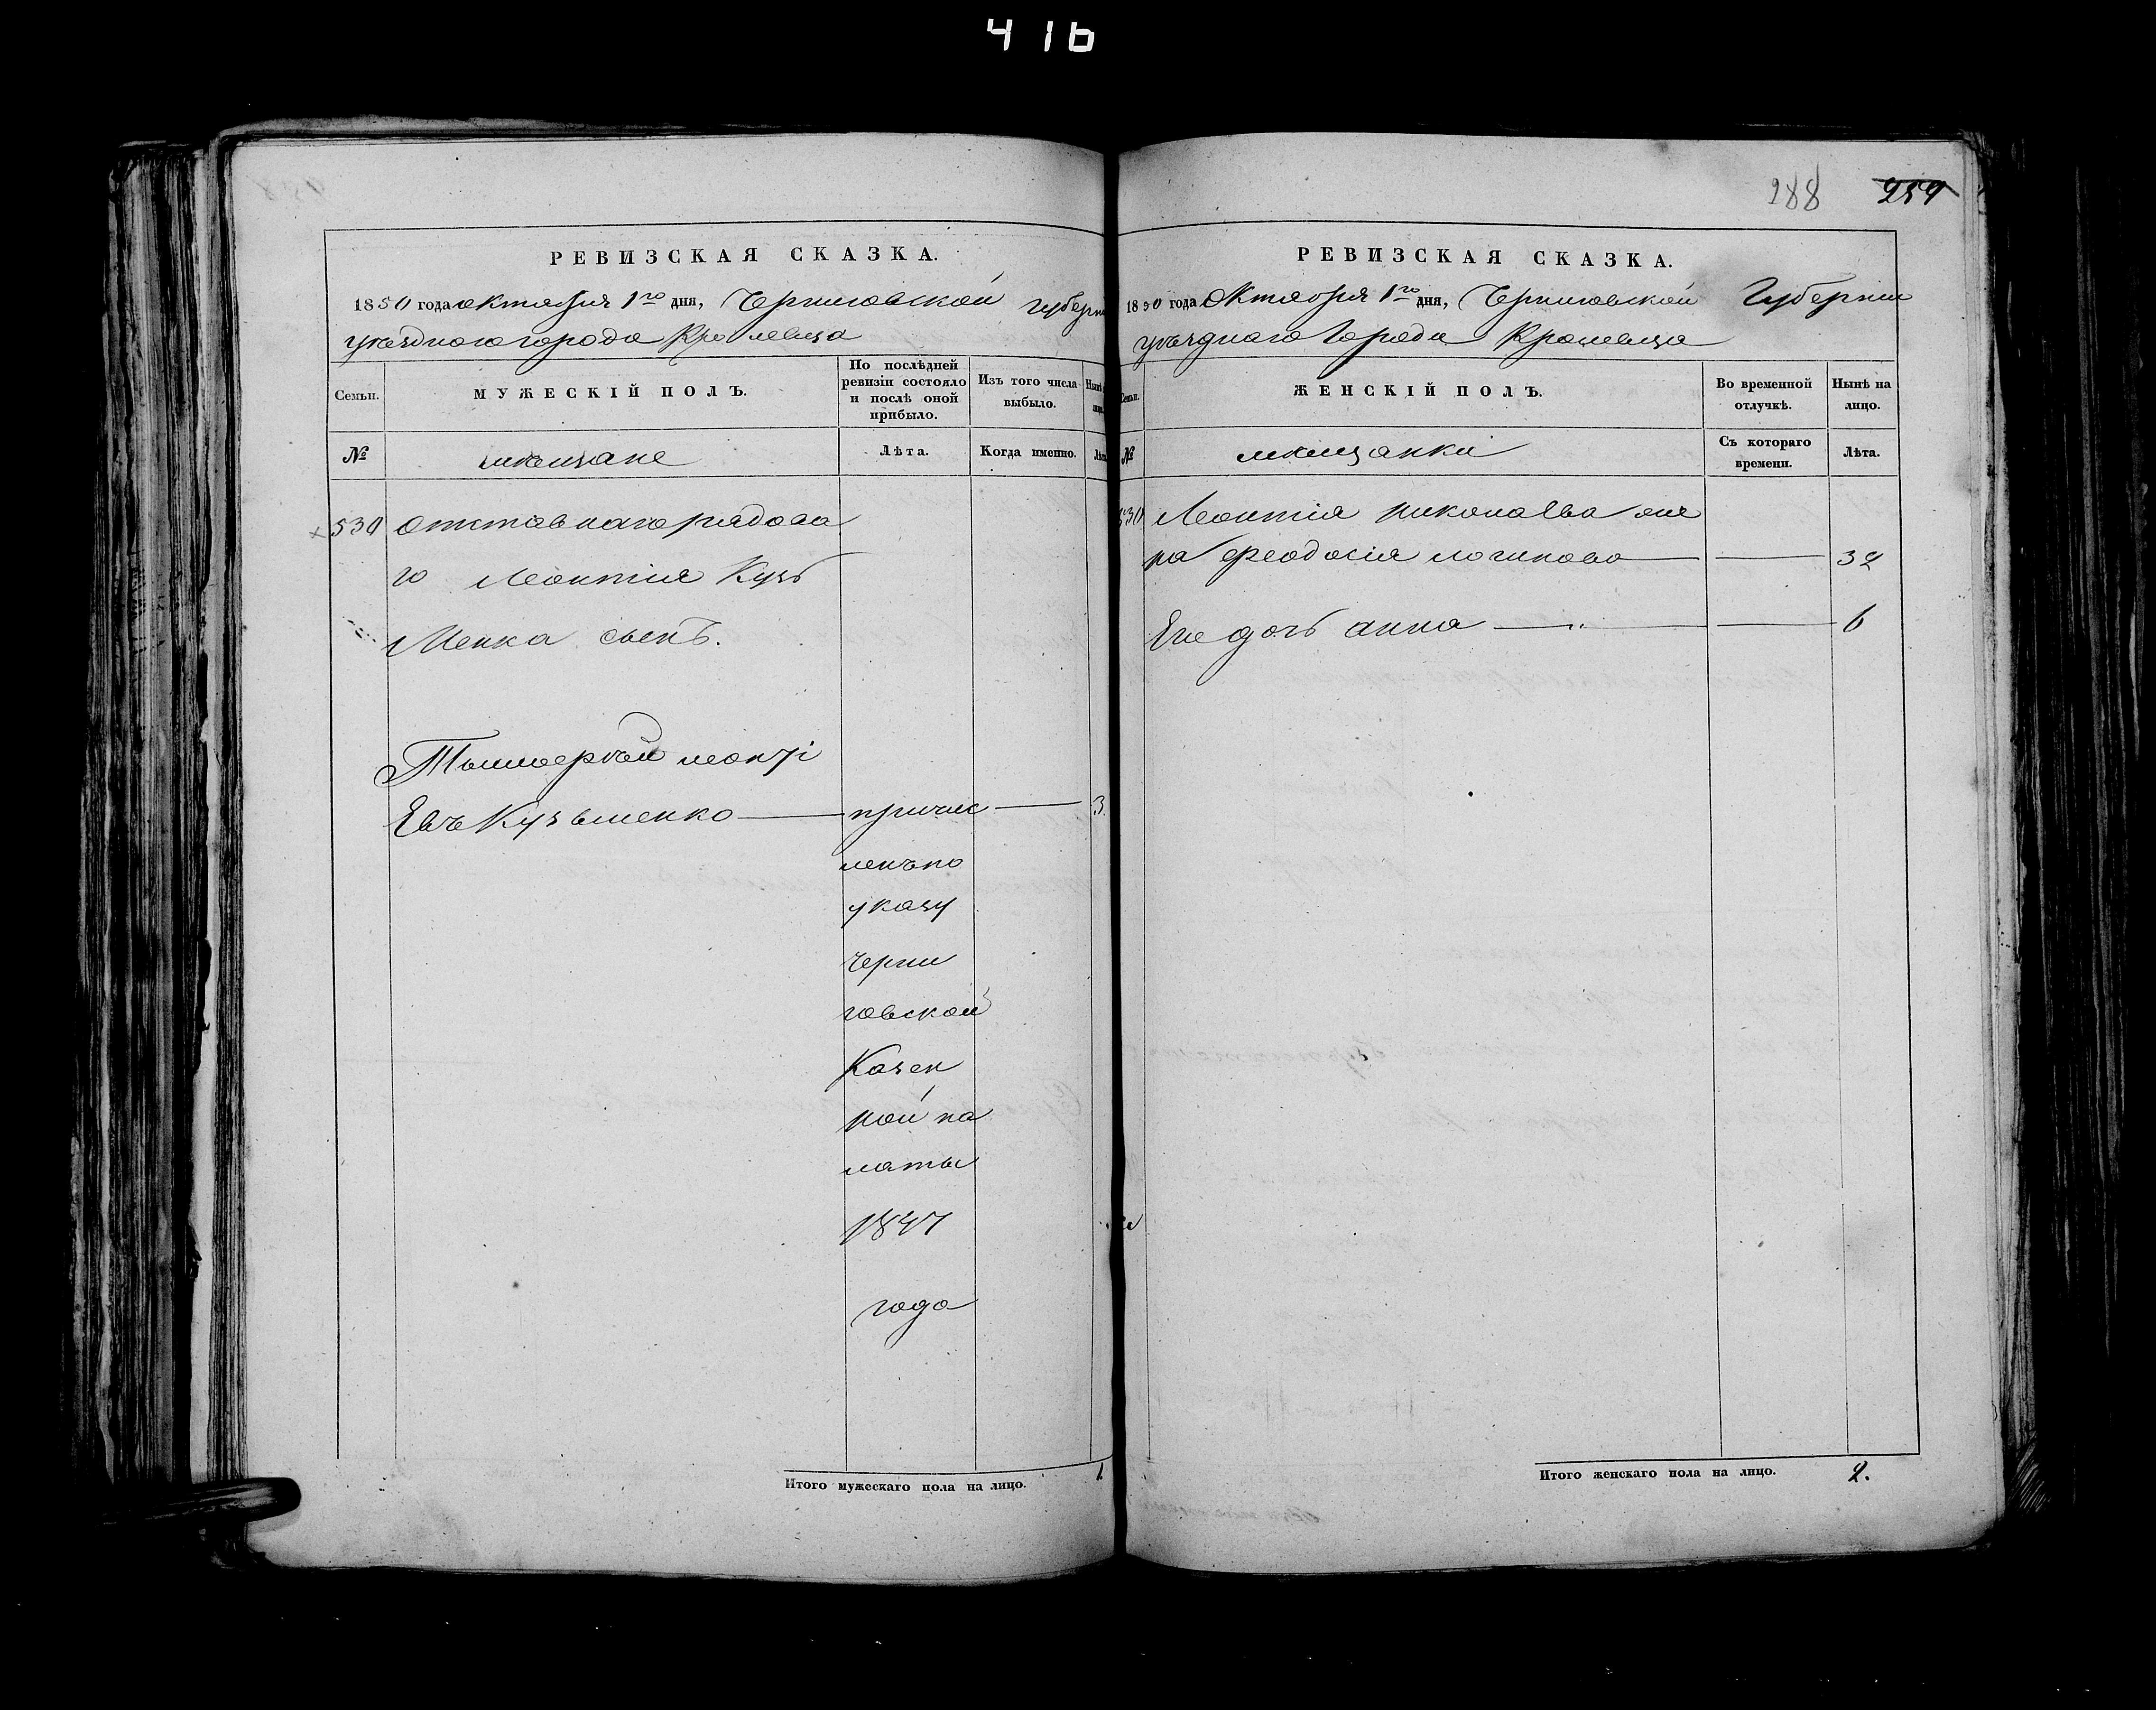 416
РЕВИЗСКАЯ СКАЗКА.
1850 года октября 1го дня, Черниговской Губерн
уѣзднаго города Кролевца
Семьи.
МУЖЕСКІЙ ПОЛЪ.
По послѣдней ревизіи состояло и послѣ оной прибыло.
Изъ того числа выбыло.
№
мѣщане
Лѣта.
Когда именно.
530 отставнаго рядова
го Леонтія Кузь
Менка сынъ.
Леонті
Евъ Кузьменко — причис — 3
ленъ по
указу
Черни
говской
Казен
ной па
латы
1847
года
Итого мужескаго пола на лицо. 1.
288 289
РЕВИЗСКАЯ СКАЗКА.
1850 года Октября 1го дня, Черниговской Губерніи
уѣзднаго Города Кролевца
Семьи.
ЖЕНСКІЙ ПОЛЪ.
Во временной отлучкѣ.
Нынѣ на лицо.
№
мѣщанки
Съ котораго времени.
Лѣта.
530 Леонтія Николаева же
на Феодосія логинова — — 32
Ея дочь анна — — 6
Итого женскаго пола на лицо. 2.